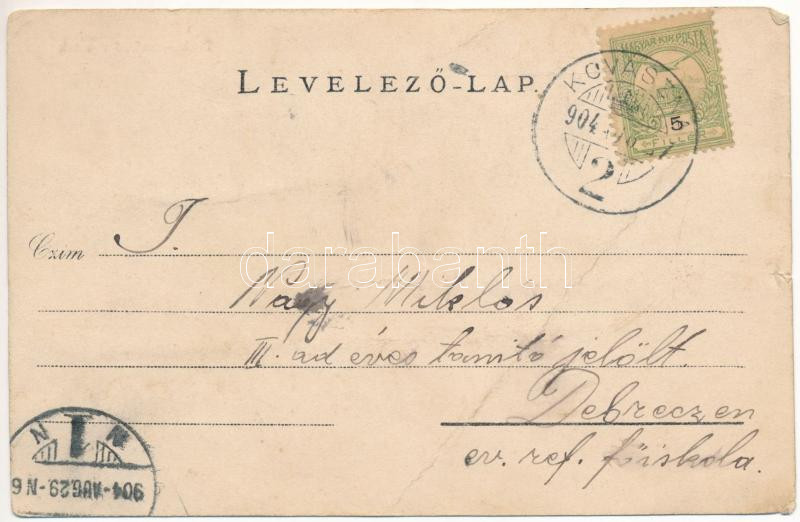 LEVELEZŐ-LAP.
MAGYAR KIR. POSTA
5
FILLÉR
KOVÁSZNA
904
2
Czim T.
Nagy Miklós
III. ad éves tanitó jelölt.
Debreczen
ev. ref. főiskola.
904-AUG.29-N6
1
darabanth